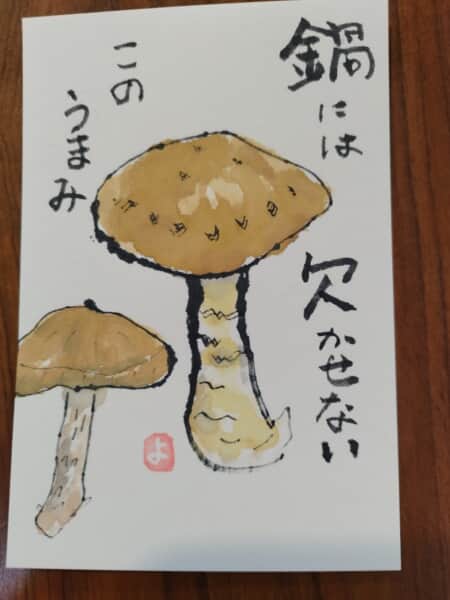 鍋には
欠かせない
この
うまみ
よ